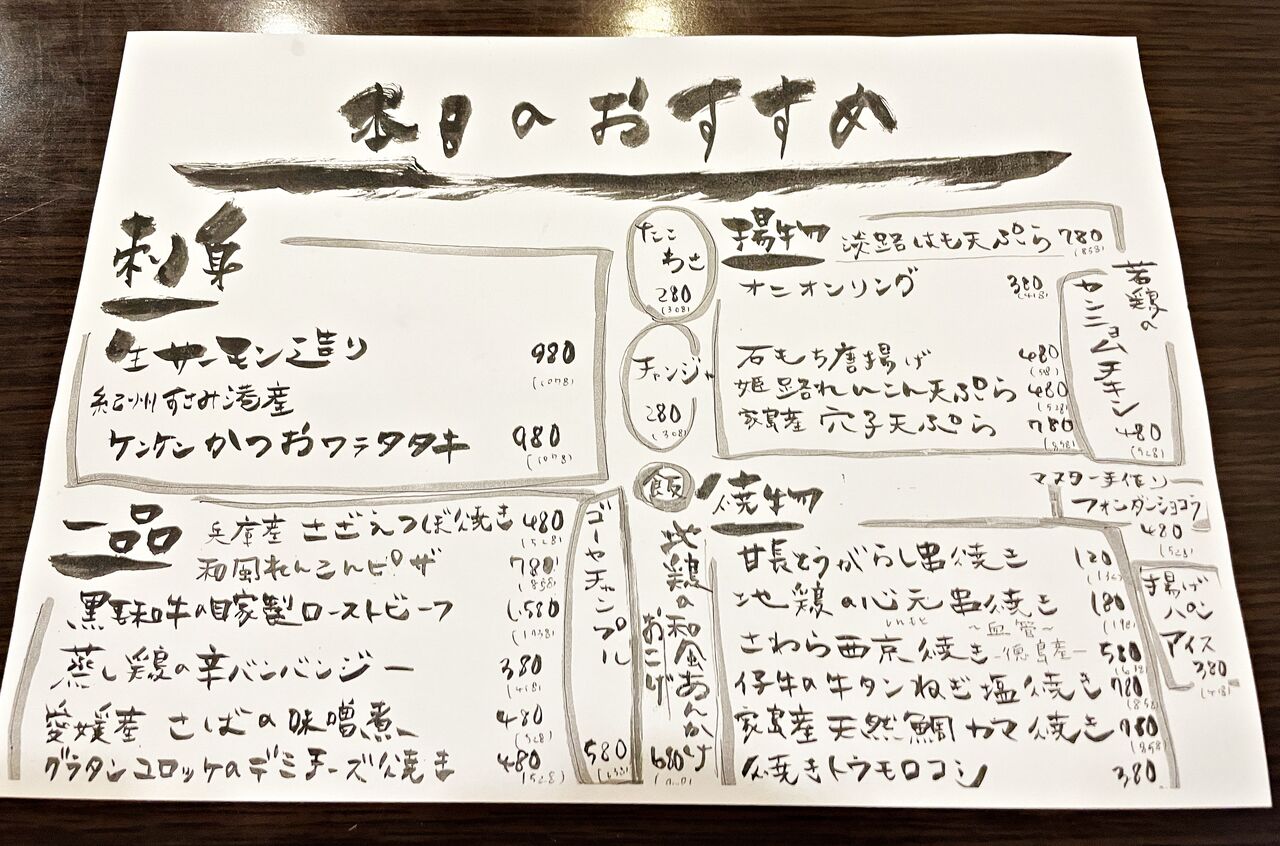 本日のおすすめ
刺身
生サーモン造り 980
(1078)
紀州すさみ湾産
ケンケンかつおワラタタキ 980
(1078)
たこ
わさ
280
(308)
チャンジャ
280
(308)
揚物
淡路はも天ぷら 780
(858)
オニオンリング 380
(418)
石もち唐揚げ 480
(528)
姫路れんこん天ぷら 480
(528)
家島産 穴子天ぷら 780
(858)
若鶏の
ヤンニョムチキン
480
(528)
一品
兵庫産 さざえつぼ焼き 480
(528)
和風れんこんピザ 780
(858)
黒毛和牛の自家製ローストビーフ 1,580
(1738)
蒸し鶏の辛バンバンジー 380
(418)
愛媛産 さばの味噌煮 480
(528)
グラタンコロッケのデミチーズ焼き 480
(528)
ゴーヤチャンプル
580
飯
地鶏の和風あんかけ
おこげ
680
焼物
甘長とうがらし串焼き 120
地鶏の心元串焼き 180
(198)
~血管~
さわら西京焼き -徳島産- 580
(638)
仔牛の牛タンねぎ塩焼き 780
(858)
家島産 天然鯛カマ焼き 780
(858)
焼きトウモロコシ 380
マスター手作り
フォンダンショコラ
480
(528)
揚げ
パン
アイス
380
(418)